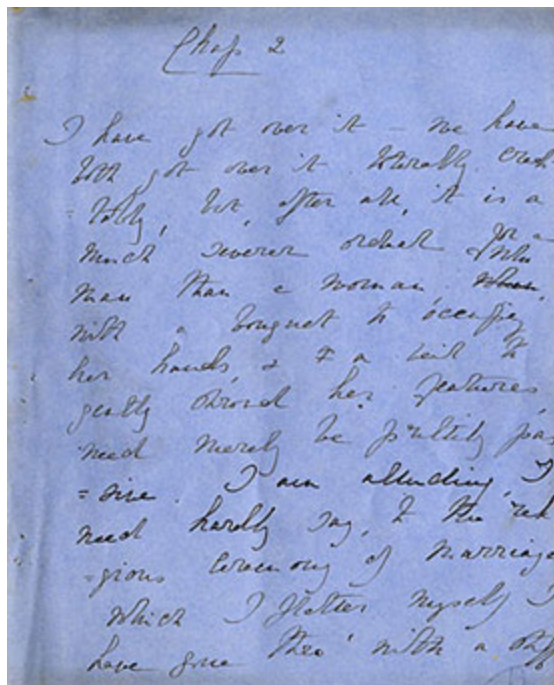 Chap 2
I have got over it – we have
both got over it tolerably cred
=itably, but, after all, it is a
much severer ordeal for a
man than a woman, who,
with a bouquet to occupy
her hands, & a veil to
gently shroud her features,
need merely be prettily pas
=sive. I am alluding, I
need hardly say, to the reli
=gious ceremony of marriage
which I flatter myself I
have gone thro' with a stiff